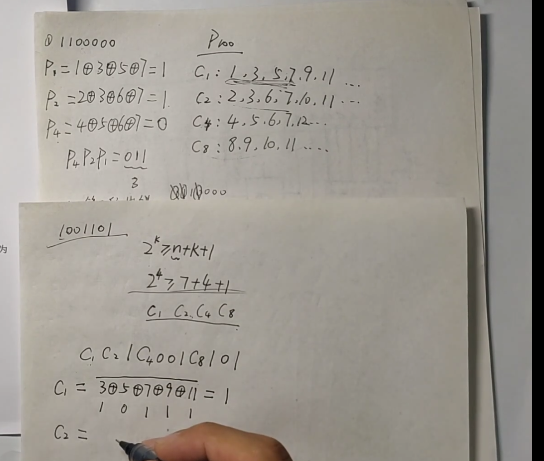 ① 1100000
P₁=1⊕3⊕5⊕7=1
P₂=2⊕3⊕6⊕7=1
P₄=4⊕5⊕6⊕7=0
P₄P₂P₁=011
3
C₁: 1,3,5,7,9,11 ...
C₂: 2,3,6,7,10,11 ...
C₄: 4,5,6,7,12...
C₈: 8,9,10,11 ....
000
为
1001101
2ᵏ≥n+k+1
2⁴≥7+4+1
C₁ C₂ C₄ C₈
C₁ C₂ 1 C₄ 0 0 1 C₈ 1 0 1
C₁ = 3⊕5⊕7⊕9⊕11 = 1
1 0 1 1 1
C₂ =